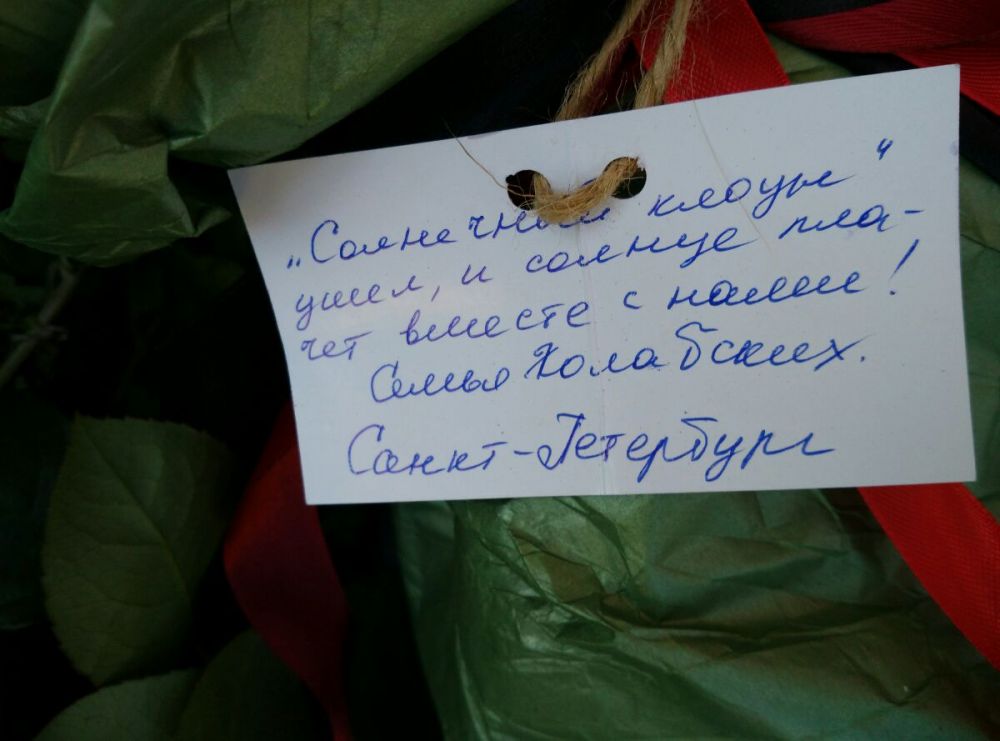 „Солнечный клоун"
ушел, и солнце пла-
чет вместе с нами!
Семья Холабских.
Санкт-Петербург